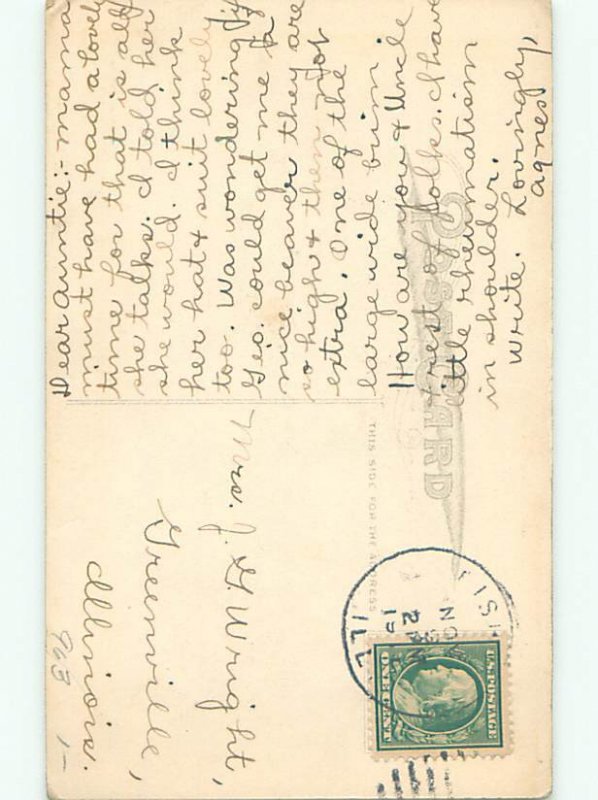 Dear auntie:- mama
must have had a lovely
time for that is all
she talks. I told her
she would. I think
her hat & suit lovely
too. Was wondering if
Geo. could get me a
nice beaver they are
so high & them not
extra. One of the
large wide brim
How are you & Uncle
& rest of folks. I have
little rheumatism
in shoulder.
Write. Lovingly,
agnes
POST CARD
THIS SIDE FOR THE ADDRESS
Mrs. J. G. Wright,
Greenville,
Illinois.
963
1-
NO
ILL
U.S. POSTAGE
ONE CENT